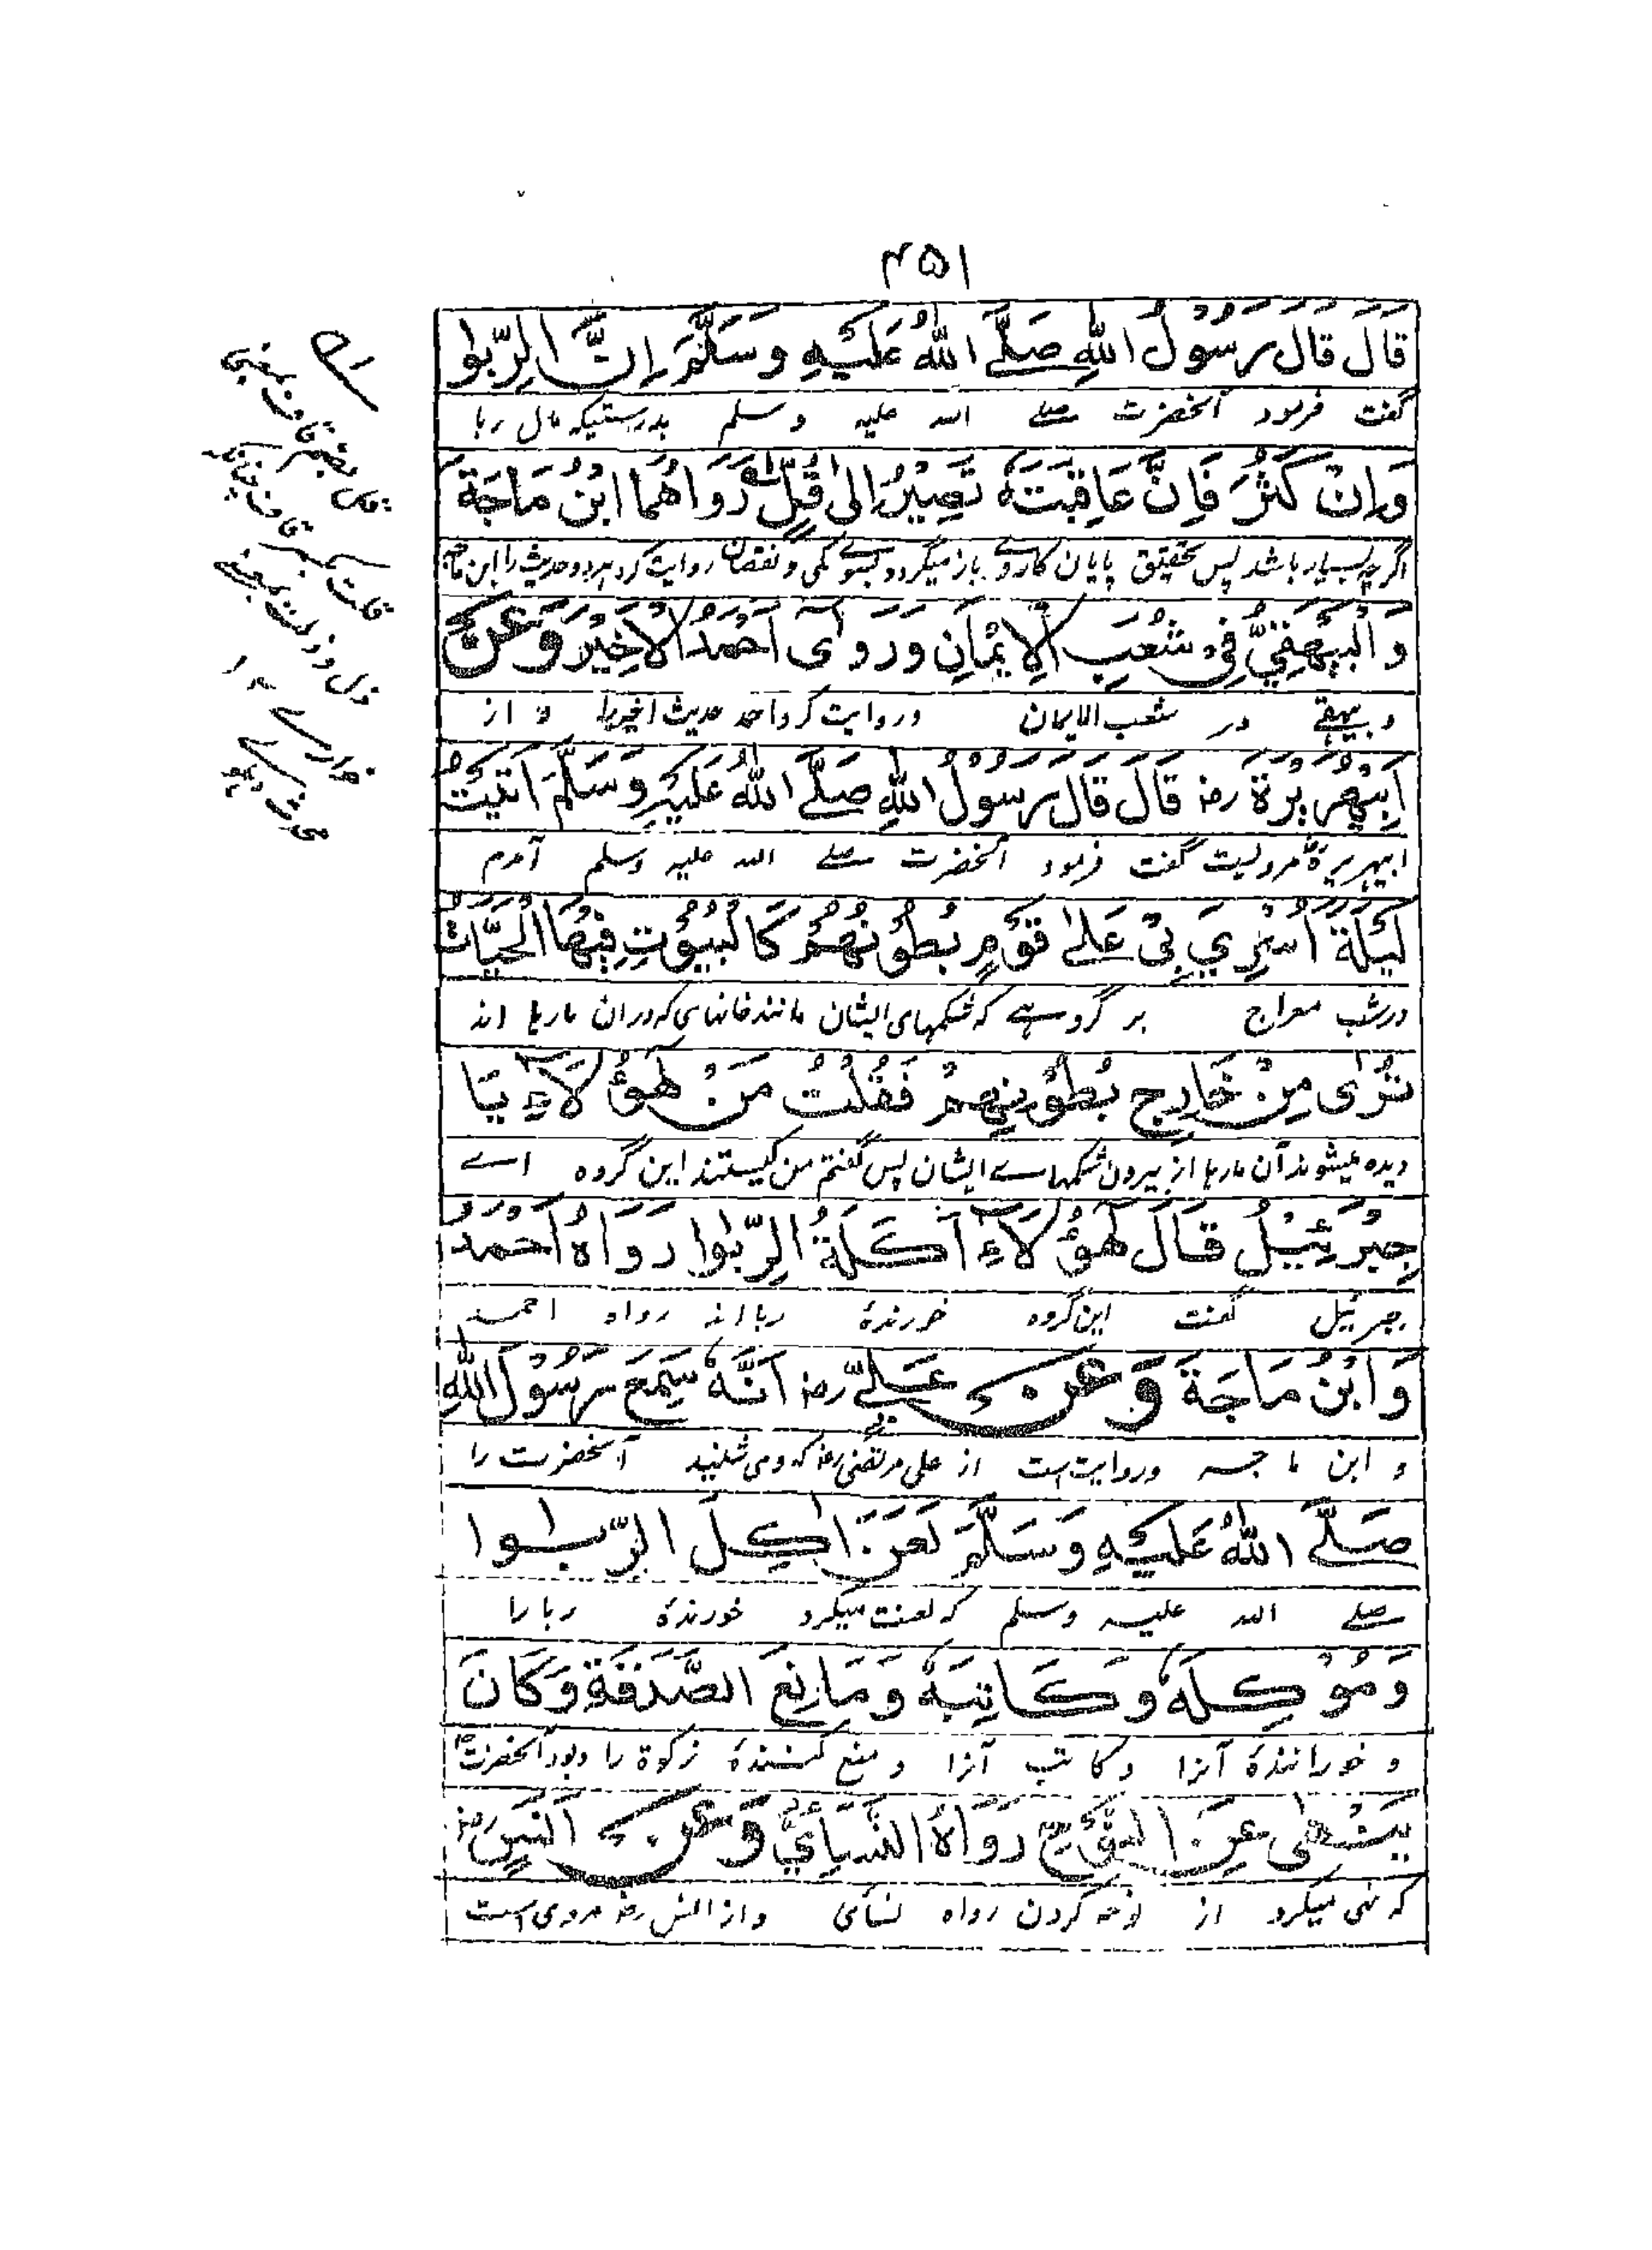 ۴۵۱
قَالَ قَالَ رَسُوْلُ اللّٰهِ صَلَّے اللّٰهُ عَلَيْهِ وَسَلَّمَ اِنَّ الرِّبٰوا
گفت فرمود آنحضرت صلے الله علیه وسلم بدرستیکه مال ربا
وَاِنْ كَثُرَ فَاِنَّ عَاقِبَتَهٗ تَصِيْرُ اِلٰى قُلٍّ رَوَاهُمَا ابْنُ مَاجَةَ
اگرچه بسیار باشد پس تحقیق پایان کار وے باز میگردد بسوے کمی و نقصان روایت کرد هر دو حدیث را ابن ماجه
وَالْبَيْهَقِيُّ فِىْ شُعَبِ الْاِيْمَانِ وَرَوٰى اَحْمَدُ الْاَخِيْرَ وَعَنْ
و بیهقے در شعب الایمان و روایت کرد احمد حدیث اخیر را و از
اَبِيْهُرَيْرَةَ رض قَالَ قَالَ رَسُوْلُ اللّٰهِ صَلَّے اللّٰهُ عَلَيْهِ وَسَلَّمَ اَتَيْتُ
ابیهریره مرویست گفت فرمود آنحضرت صلے الله علیه وسلم آمدم
لَيْلَةَ اُسْرِيَ بِىْ عَلٰى قَوْمٍ بُطُوْنُهُمْ كَالْبُيُوْتِ فِيْهَا الْحَيَّاتُ
در شب معراج بر گروهے که شکمهای ایشان مانند خانهای که دران مارها اند
تُرٰى مِنْ خَارِجِ بُطُوْنِهِمْ فَقُلْتُ مَنْ هٰؤُلَاءِ يَا
دیده میشوند آن مارها از بیرون شکمهاے ایشان پس گفتم من کیستند این گروه اے
جِبْرَئِيْلُ قَالَ هٰؤُلَاءِ اَكَلَةُ الرِّبٰوا رَوَاهُ اَحْمَدُ
جبرئیل گفت این گروه خورندهٔ ربا اند رواه احمد
وَابْنُ مَاجَةَ وَعَنْ عَلِيٍّ رض اَنَّهٗ سَمِعَ رَسُوْلَ اللّٰهِ
و ابن ماجه و روایت است از علی مرتضی رض که وی شنید آنحضرت را
صَلَّے اللّٰهُ عَلَيْهِ وَسَلَّمَ لَعَنَ اٰكِلَ الرِّبٰوا
صلے الله علیه وسلم که لعنت میکرد خورندهٔ ربا را
وَمُوْكِلَهٗ وَكَاتِبَهٗ وَمَانِعَ الصَّدَقَةِ وَكَانَ
و خورانندهٔ آنرا و کاتب آنرا و منع کنندهٔ زکوة را و بود آنحضرت
يَنْهٰى عَنِ النَّوْحِ رَوَاهُ النَّسَائِيُّ وَعَنْ اَنَسٍ رض
که نهی میکرد از نوحه کردن رواه نسائی و از انس رض مروی است